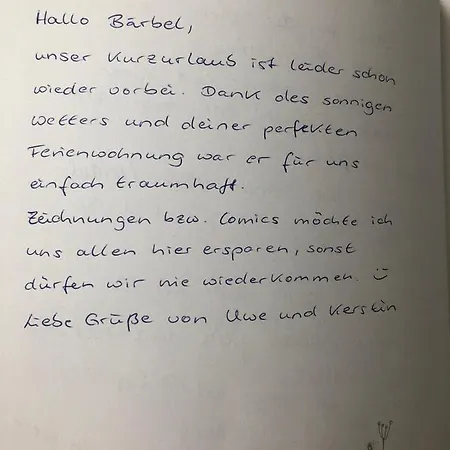 Hallo Bärbel,
unser Kurzurlaub ist leider schon
wieder vorbei. Dank des sonnigen
Wetters und deiner perfekten
Ferienwohnung war er für uns
einfach traumhaft.
Zeichnungen bzw. Comics möchte ich
uns allen hier ersparen, sonst
dürfen wir nie wiederkommen. :)
Liebe Grüße von Uwe und Kerstin